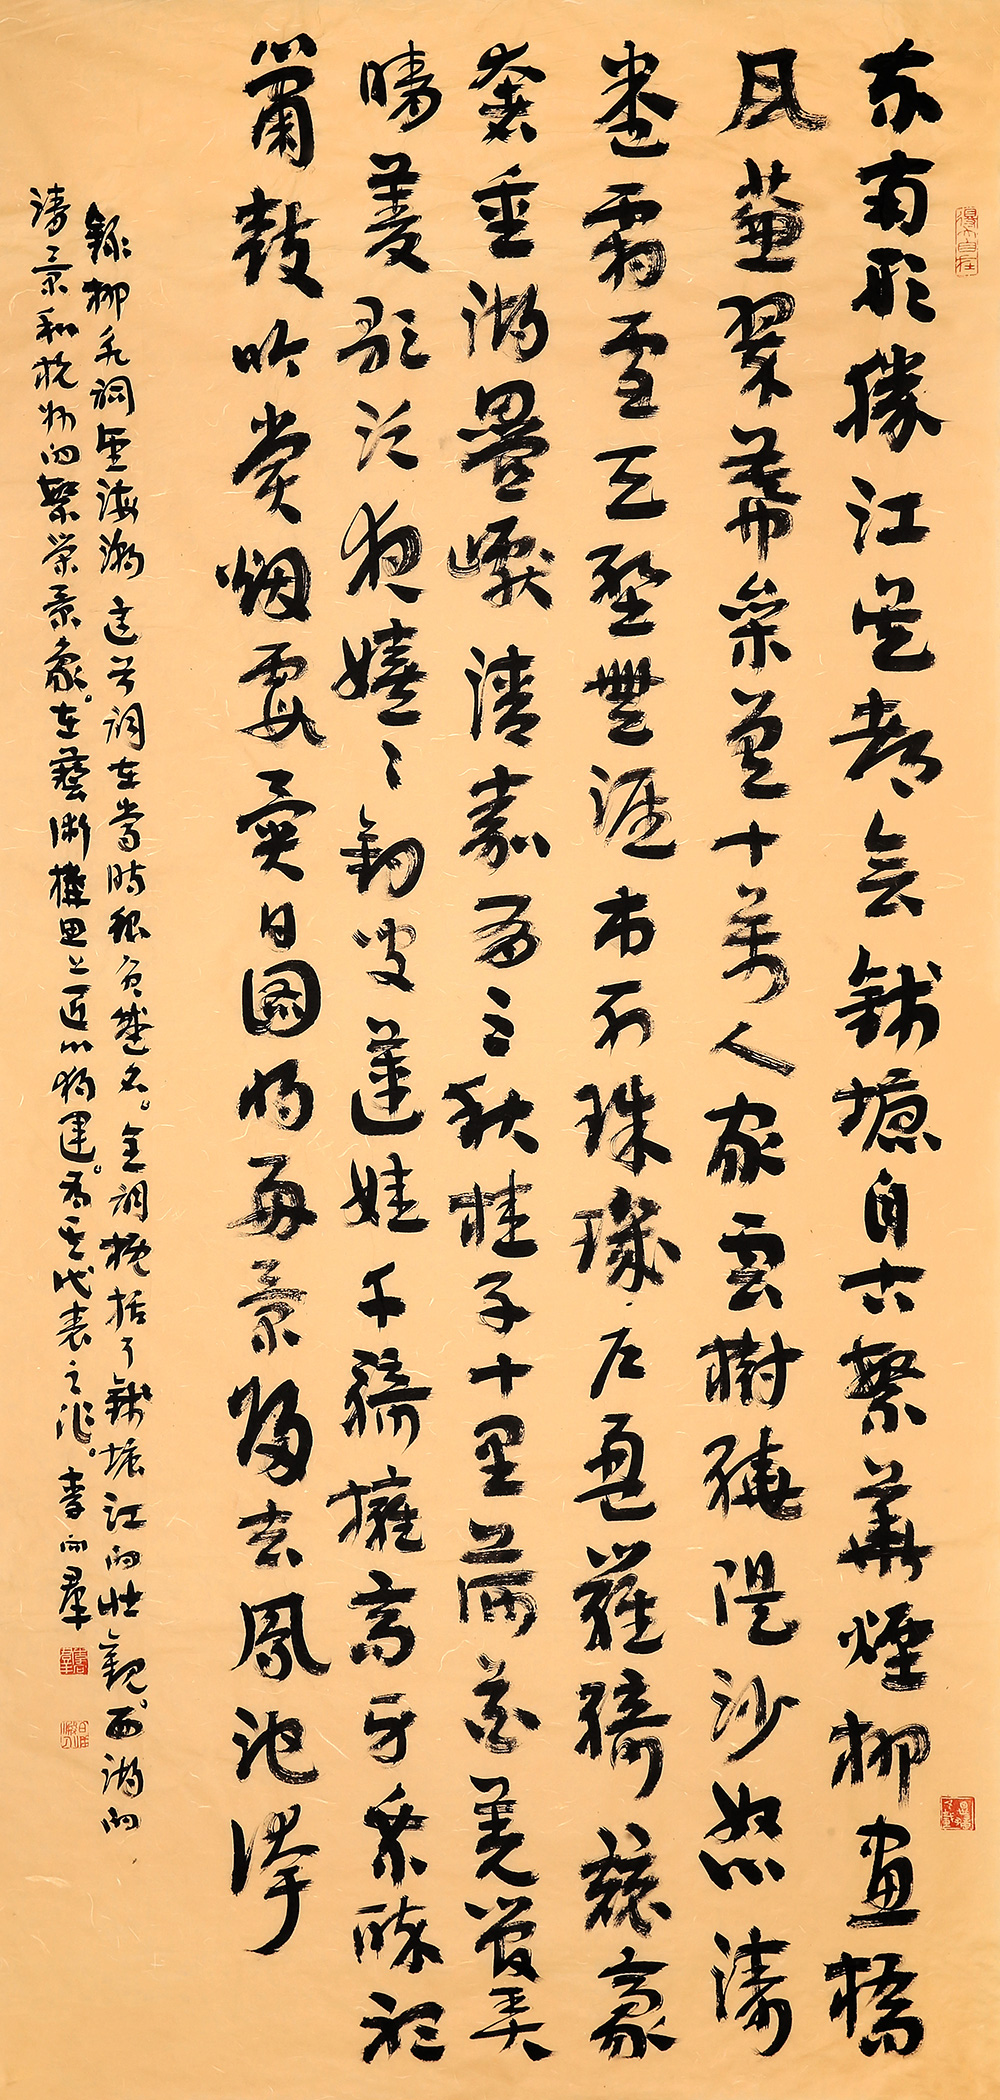 东南形勝江吴都会錢塘自古繁華煙柳畫橋
风簾翠幕参差十萬人家雲樹繞隄沙怒濤
卷霜雪天塹無涯市列珠璣户盈羅綺競豪
奢重湖叠巘清嘉有三秋桂子十里荷花羌管弄
晴菱歌泛夜嬉嬉釣叟蓮娃千騎擁高牙乘醉聽
簫鼓吟赏烟霞異日图将好景歸去鳳池誇
錄柳永詞望海潮這首詞在當時很負盛名。全詞概括了錢塘江的壮觀。西湖的
清景和杭州的繁荣景象。在藝術構思上匠心獨運。為其代表之作。李向群